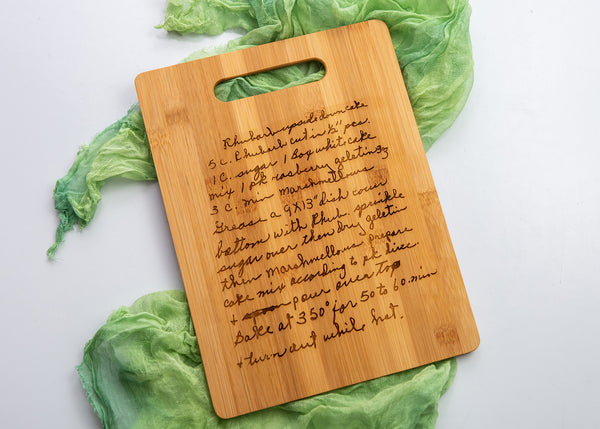 Rhubarb upside down cake
5 C. Rhubarb cut in ½" pcs.
1 C. sugar 1 Box white cake
mix 1 pk rasberry gelatin 3 oz
3 C. min Marshmellows
Grease a 9X13" dish cover
bottom with Rhub. sprinkle
sugar over then dry gelatin
then Marshmellows prepare
cake mix according to pk direc.
+ pour over Top
Bake at 350° for 50 to 60 min
+ turn out while hot.